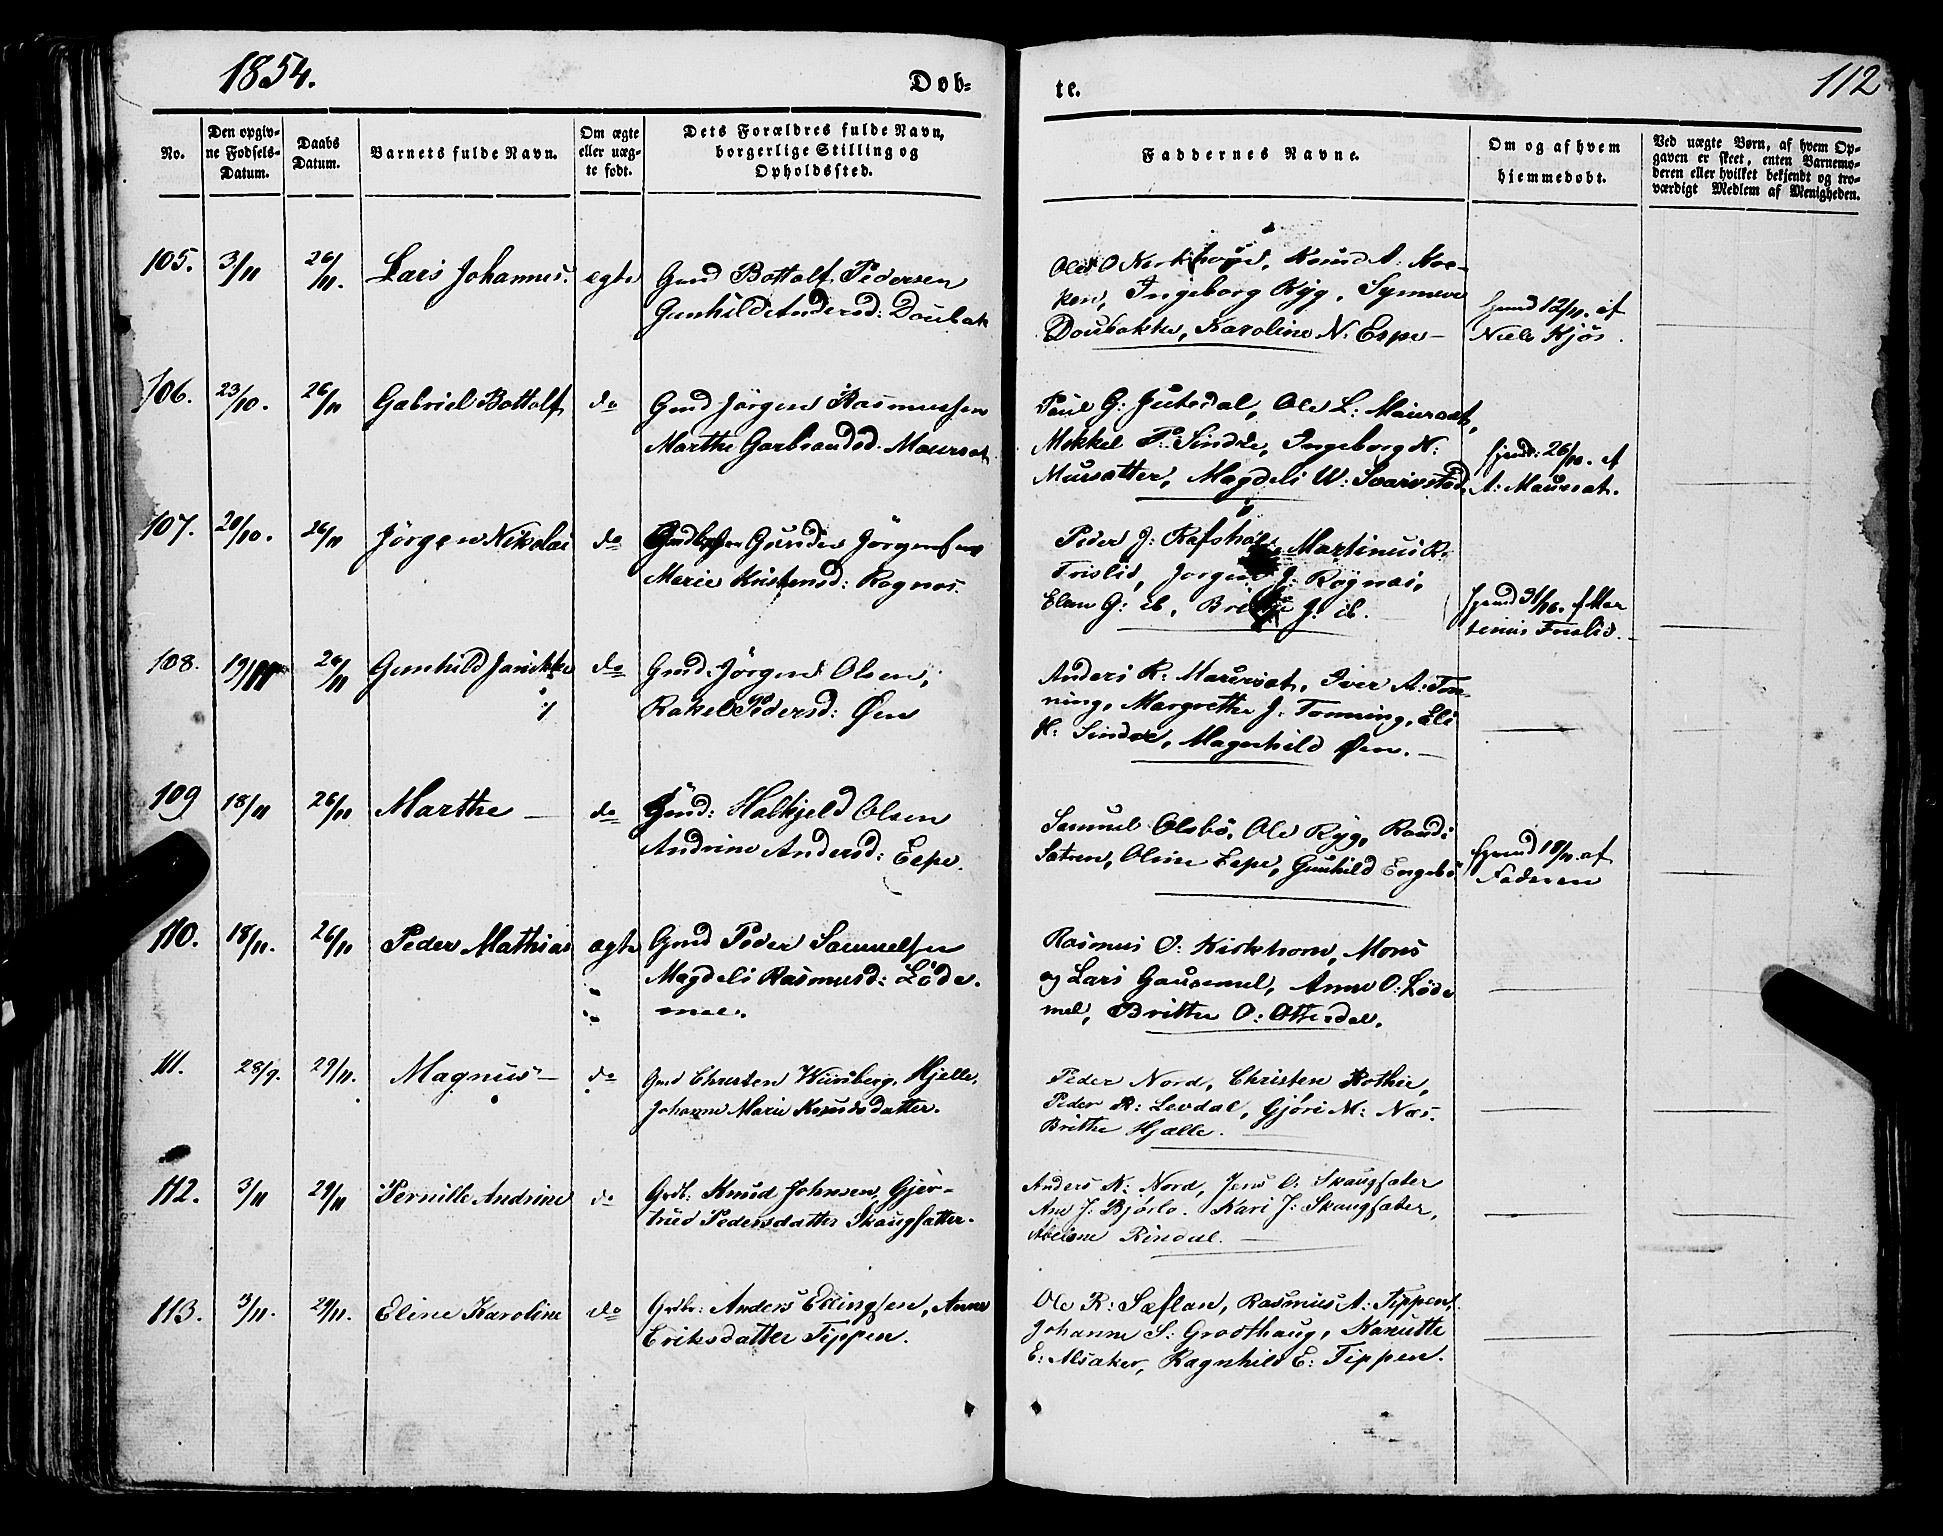 1854.
Døb=
te.
112
No.
Den opgiv=
ne Fødsels=
Datum.
Daabs
Datum.
Barnets fulde Navn.
Om ægte
eller uæg=
te født.
Dets Forældres fulde Navn,
borgerlige Stilling og
Opholdssted.
Faddernes Navne.
Om og af hvem
hjemmedøbt.
Ved uægte Børn, af hvem Op=
gaven er skeet, enten Barnemo=
deren eller hvilket bekjendt og tro=
værdigt Medlem af Menigheden.
105. 3/11 26/11. Lars Johannes. ægte Gmd Bottolf Pedersen
Gunhild Andersd: Doubak
Ole O Kirkhorn, Knud A:
Ingeborg Ryg, Synneve
Doubakke, Karoline N: Espe —
hjmd 12/11. af
Niels Kjøs.
106. 23/10. 26/11 Gabriel Bottolf do Gmd Jørgen Rasmussen
Marthe Garbrandsd. Maursat
Paul G: Jutedal, Ole L: Maursat,
Mikkel P: Sindre, Ingeborg H:
Mursatter, Magdeli W: Svarvstad,
hjmd: 26/10. af
A: Maursat.
107. 20/10. 26/11 Jørgen Nikolai do Gunder Jørgensen
Marie Kristensd: Rognas.
Peder J: Rafshol, Martinus R.
Frislid, Jørgen J: Rognas,
Elen G: ib, J: ib.
hjmd 31/10. af Mar
tinus Frislid.
108. 19/11 26/11 Gunhild Janikke do Gmd: Jørgen Olsen,
Rakel Pedersd: Øen
Anders R: Maursat, Iver A: Ton=
ning, Margrethe J: Tonning, Eli
H: Sindre, Magnhild Øen. —
109 18/11 26/11 Marthe — do Gmd: Halkjeld Olsen
Andrine Andersd: Espe.
Samuel Olsbø, Ole Ryg, Randi
Sætren, Oline Espe, Gunhild Engebø
hjmd 18/11. af
Faderen
110. 18/11. 26/11 Peder Mathias ægte Gmd Peder Samuelsen
Magdeli Rasmusd: Løde.
mel.
Rasmus O: Kirkhorn, Mons
og Lars Gausemel, Anne O: Løde
mel, Brithe O: Otterdal.
111. 28/9. 29/11. Magnus — do Gmd Christen Wiirsberg, Hjelle,
Johanne Marie Knudsdatter.
Peder Nord, Christen Rothie,
Peder R: Levdal, Gjøri M: Næs.
Brithe Hjælle.
112. 3/11 29/11 Pernille Andrine do Grdb: Knud Johnsen, Gjer=
trud Pedersdatter Skaugsatter.
Anders K: Nord, Jens O: Skaugsater
Ane J: Bjørlo. Kari J: Skaugsater,
Rindal. —
113. 3/11. 29/11. Eline Karoline do Grdbr: Anders Edingsen, Anne
Eriksdatter Tippen.
Ole R: Sæflan, Rasmus A: Tippen,
Johanne S: Grodthaug, Kanutte
E: Alsaker, Ragnhild E: Tippen.